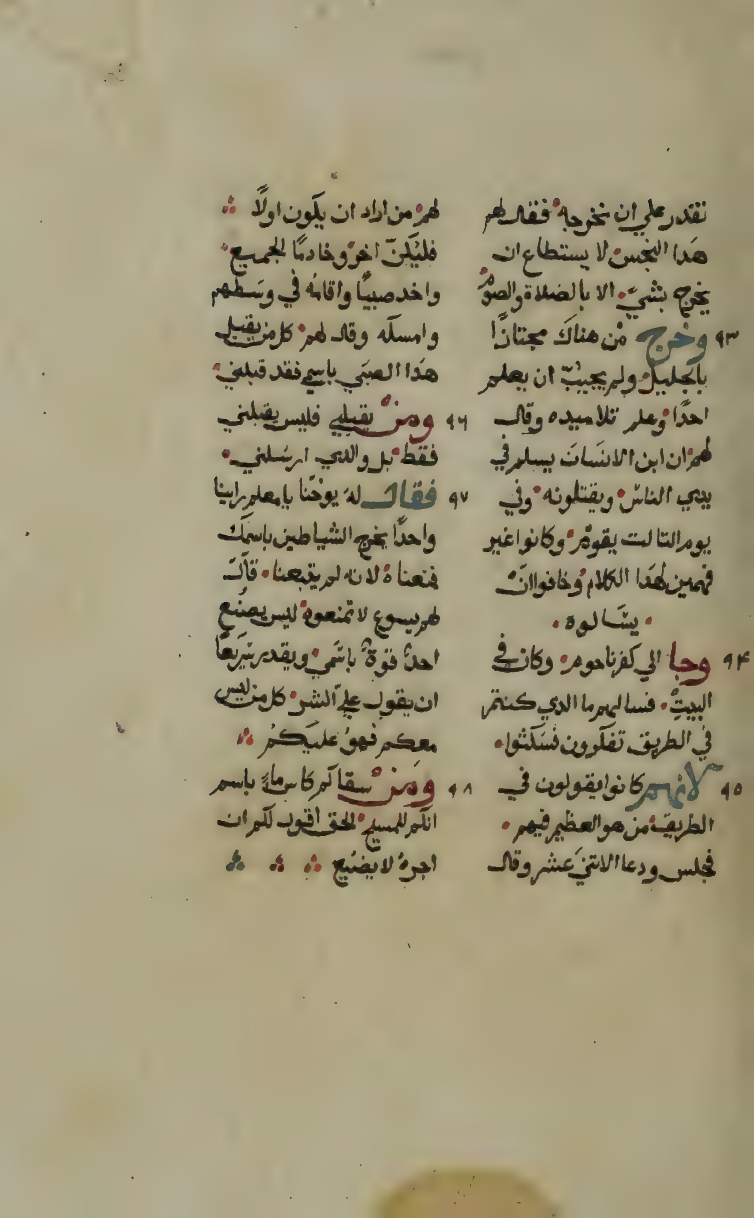 نقدر علي ان نخرجه فقال لهم
هدا الجنس لا يستطاع ان
يخرج بشي الا بالصلاة والصوم
٩٣ وخرج من هناك مجتازًا
بالجليل ولم يحبّ ان يعلم
احدًا وعلم تلاميده وقال
لهم ان ابن الانسان يسلم في
يدي الناس ويقتلونه وفي
يوم التالت يقوم وكانوا غير
فهمين لهدا الكلام وخافوا ان
يسالوه
٩٤ وجا الي كفرناحوم وكان في
البيت فسالهم ما الدي كنتم
في الطريق تفكرون فسكتوا
٩٥ لانهم كانوا يقولون في
الطريق من هو العظيم فيهم
فجلس ودعا الاتني عشر وقال
لهم من اراد ان يكون اولًا
فليكن اخر وخادمًا للجميع
واخد صبيًا واقامه في وسطهم
وامسكه وقال لهم كل من يقبل
هدا الصبي باسمي فقد قبلني
٩٦ ومن يقبلني فليس يقبلني
فقط بل والدي ارسلني
٩٧ فقال له يوحنا يا معلم راينا
واحدًا يخرج الشياطين باسمك
فمنعناه لانه لم يتبعنا قال
لهم يسوع لا تمنعوه ليس يصنع
احد قوة باسمي ويقدر سريعًا
ان يقول عليّ الشر كل من ليس
معكم فهو عليكم
٩٨ ومن سقاكم كاس ماءٍ باسم
انكم للمسيح الحق اقول لكم ان
اجره لا يضيع